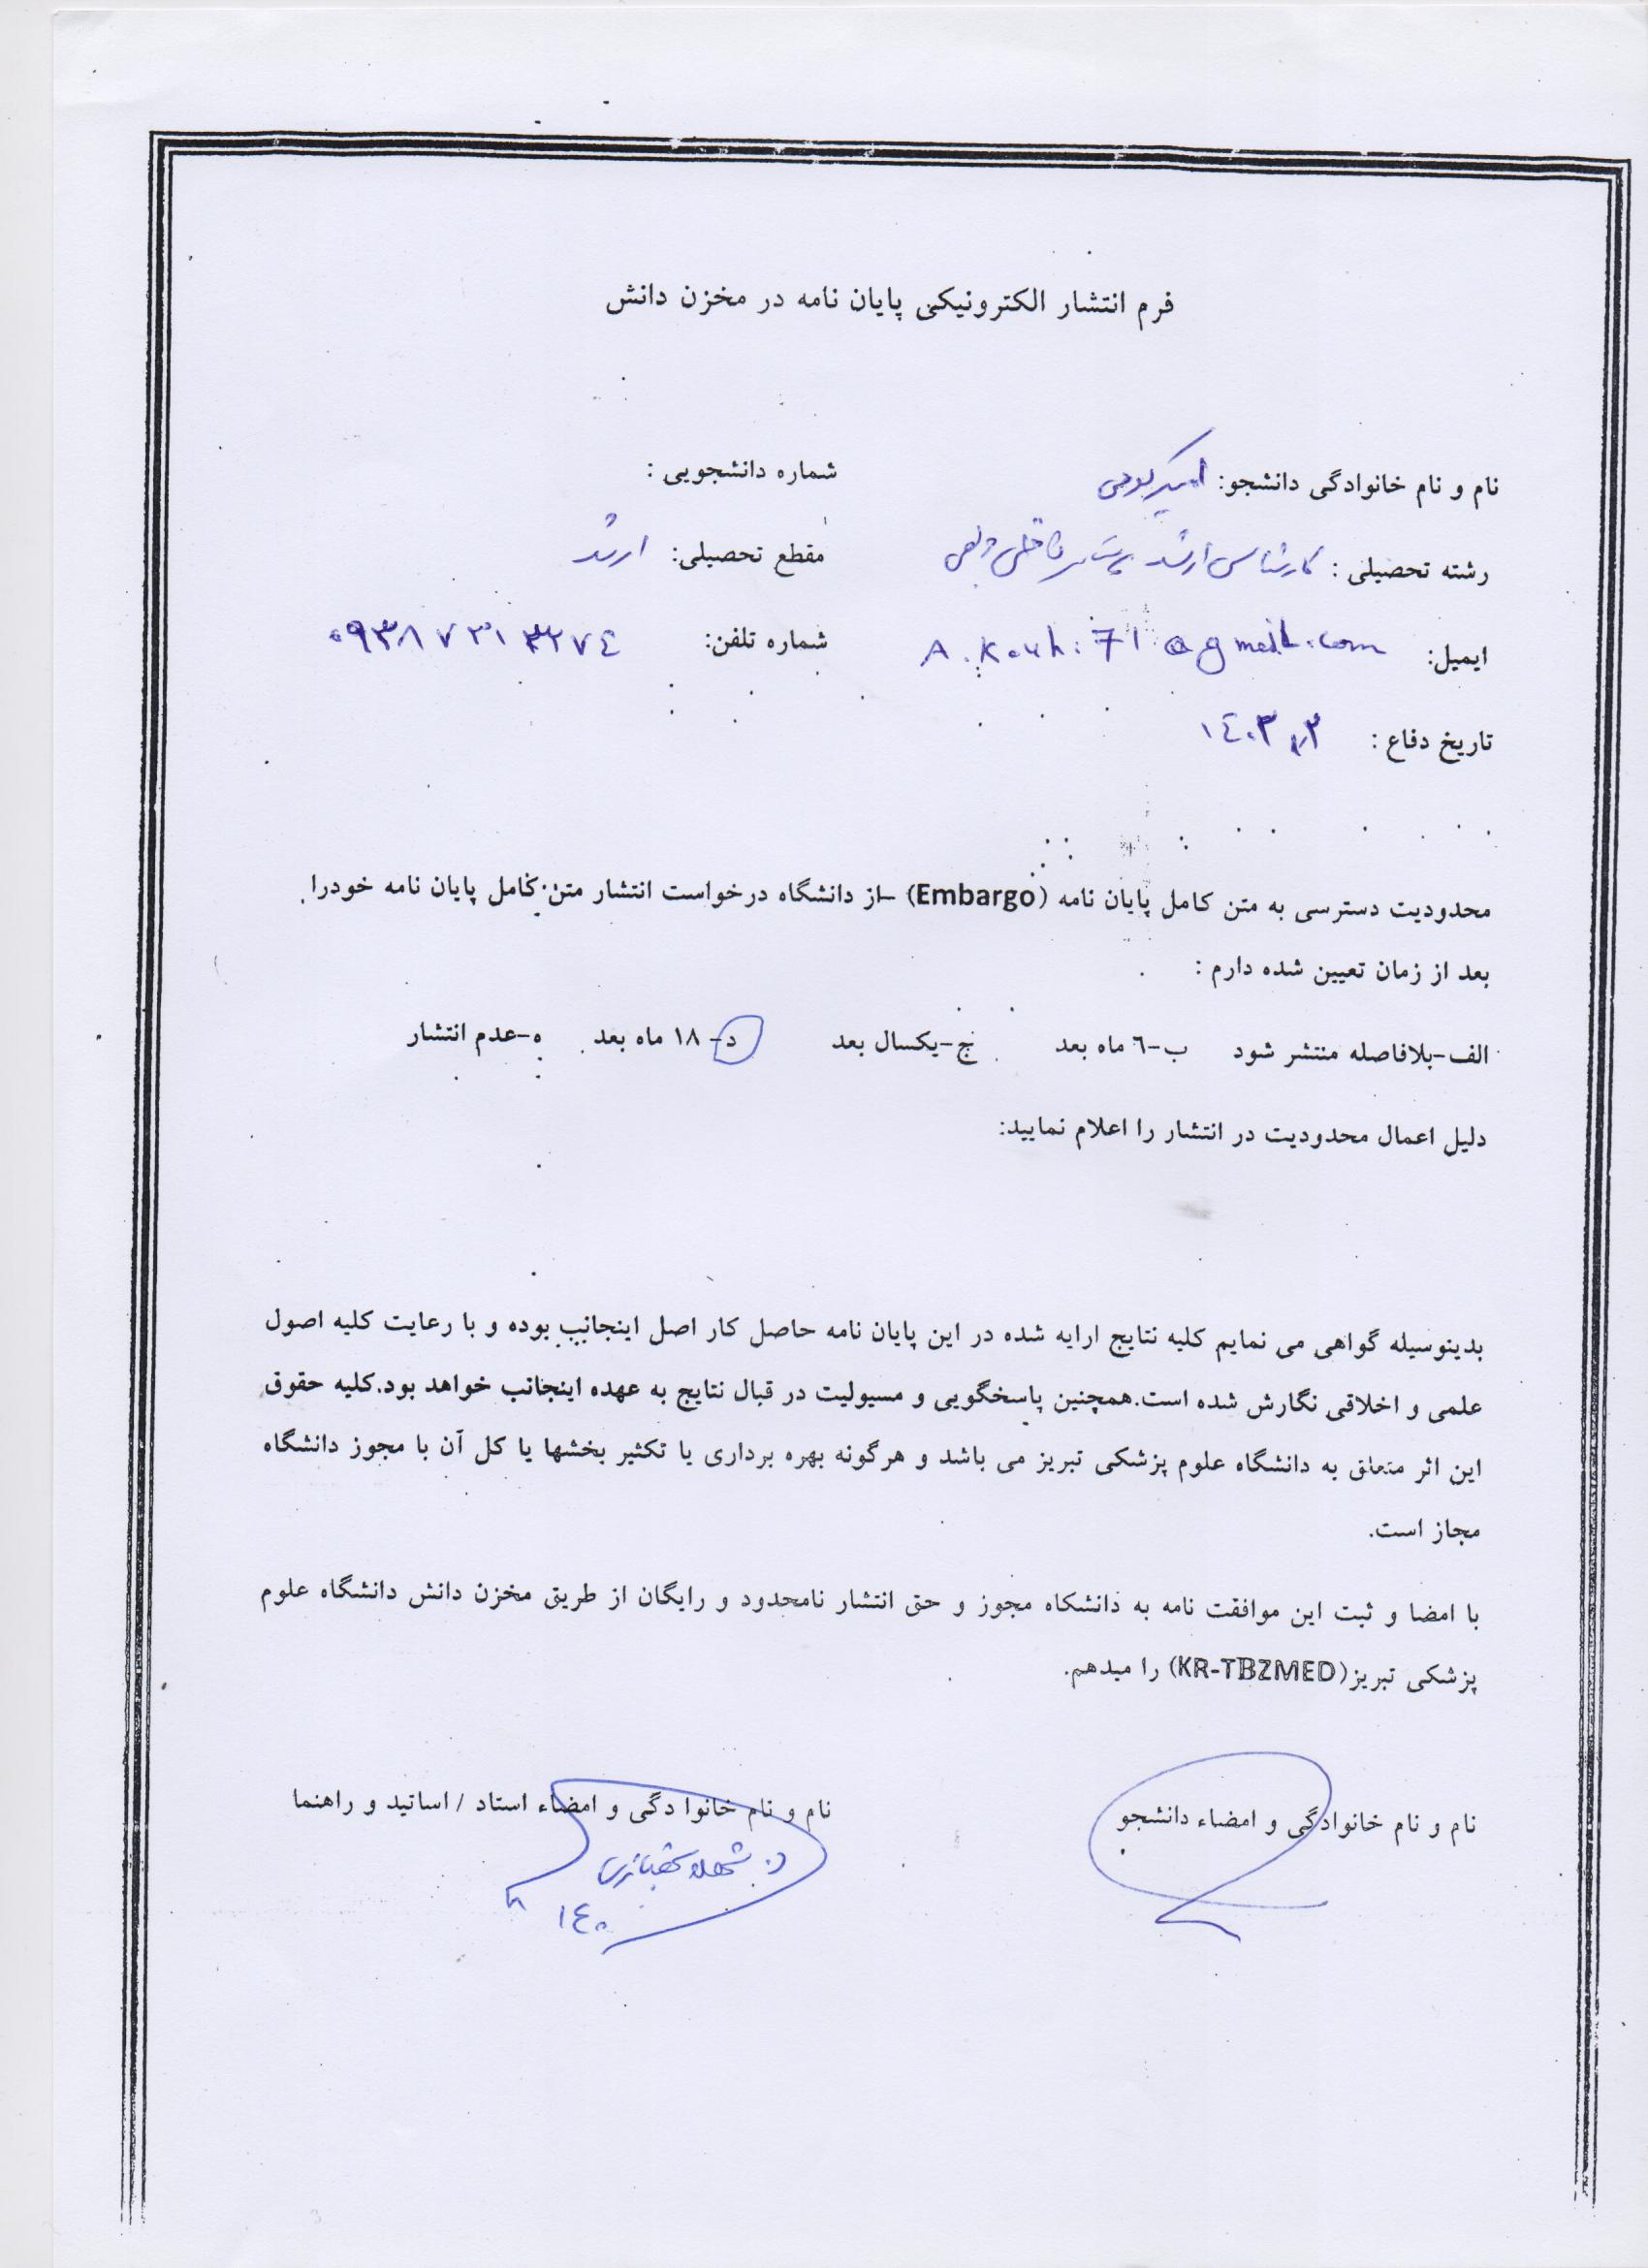 فرم انتشار الکترونیکی پایان نامه در مخزن دانش
نام و نام خانوادگی دانشجو: امیر کوهی شماره دانشجویی :
رشته تحصیلی : کارشناسی ارشد پرستاری داخلی جراحی مقطع تحصیلی: ارشد
ایمیل: A.kouhi71@gmail.com شماره تلفن:
تاریخ دفاع :
محدودیت دسترسی به متن کامل پایان نامه (Embargo) –از دانشگاه درخواست انتشار متن کامل پایان نامه خودرا
بعد از زمان تعیین شده دارم :
الف-بلافاصله منتشر شود ب-٦ ماه بعد ج-یکسال بعد د- ١٨ ماه بعد ه-عدم انتشار
دلیل اعمال محدودیت در انتشار را اعلام نمایید:
بدینوسیله گواهی می نمایم کلیه نتایج ارایه شده در این پایان نامه حاصل کار اصل اینجانب بوده و با رعایت کلیه اصول
علمی و اخلاقی نگارش شده است.همچنین پاسخگویی و مسیولیت در قبال نتایج به عهده اینجانب خواهد بود.کلیه حقوق
این اثر متعلق به دانشگاه علوم پزشکی تبریز می باشد و هرگونه بهره برداری یا تکثیر بخشها یا کل آن با مجوز دانشگاه
مجاز است.
با امضا و ثبت این موافقت نامه به دانشکاه مجوز و حق انتشار نامحدود و رایگان از طریق مخزن دانش دانشگاه علوم
پزشکی تبریز(KR-TBZMED) را میدهم.
نام و نام خانوادگی و امضاء دانشجو نام و نام خانوا دگی و امضاء استاد / اساتید و راهنما